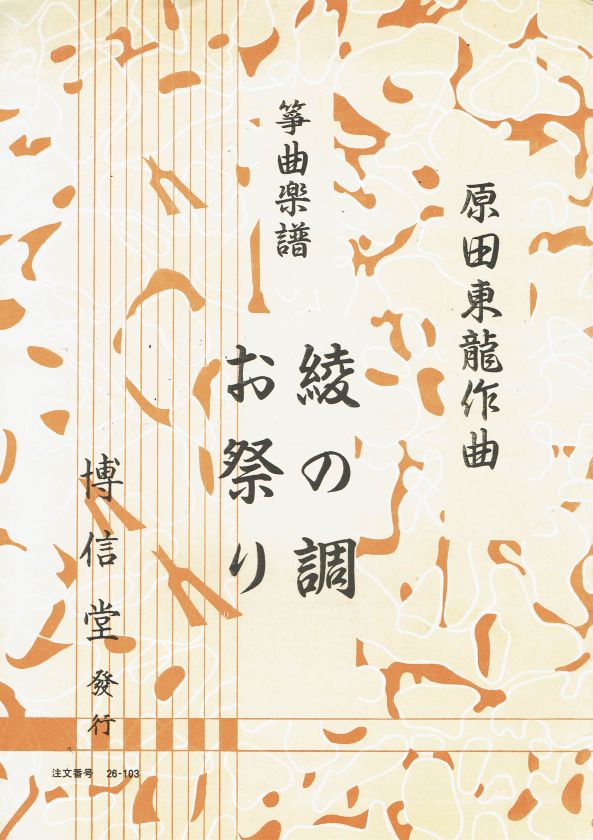 原田東龍作曲
箏曲楽譜
綾の調
お祭り
博信堂發行
注文番号 26-103